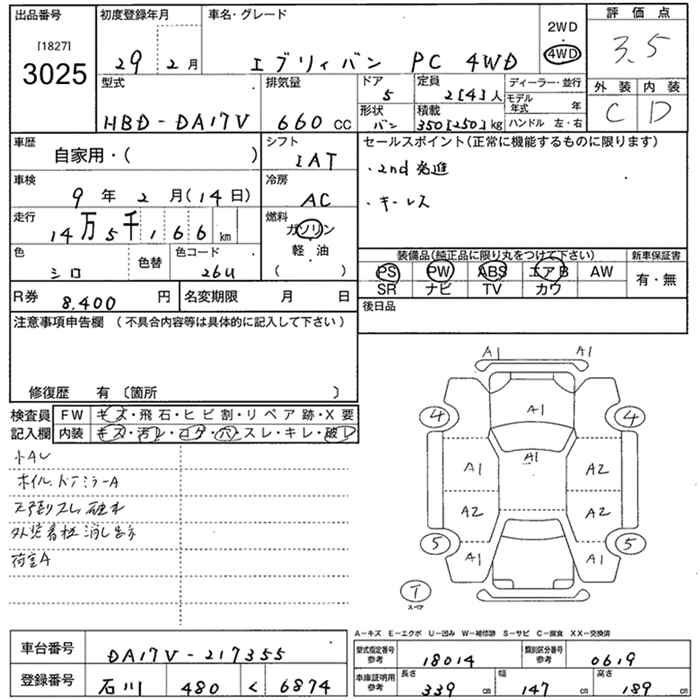 出品番号
[1827]
3025
初度登録年月
29年 2月
車名・グレード
エブリィバン PC 4WD
2WD
4WD
評価点
3.5
型式
HBD-DA17V
排気量
660 CC
ドア
5
形状
バン
定員
2[4]人
積載
350[250]kg
ディーラー・並行
モデル年式 年
ハンドル 左・右
外装 内装
C D
車歴
自家用・( )
シフト
IAT
セールスポイント(正常に機能するものに限ります)
・2nd発進
・キーレス
車検
9年 2月(14日)
冷房
AC
走行
14万5千166km
燃料
ガソリン
軽油
( )
色
シロ
色替
色コード
26U
装備品(純正品に限り丸をつけて下さい)
PS PW ABS エアB AW
SR ナビ TV カワ
新車保証書
有・無
R券 8,400 円
名変期限 月 日
後日品
注意事項申告欄 (不具合内容等は具体的に記入して下さい)
修復歴 有 〔箇所 〕
検査員記入欄
FW キズ・飛石・ヒビ割・リペア跡・X要
内装 キズ・汚レ・コゲ・穴・スレ・キレ・破レ
小AU
ホイル、ドアミラーA
荷室A
A1 A1
4 A1 4
A1 A1 A2
A2 A2
5 A1 A1 5
T
スペア
A-キズ E-エクボ U-凹み W-補修跡 S-サビ C-腐食 XX-交換済
車台番号 DA17V-217355
登録番号 石川 480 く 6874
型式指定番号 参考 18014
類別区分番号 参考 0619
車庫証明用 参考
長さ 339 cm
幅 147 cm
高さ 189 cm